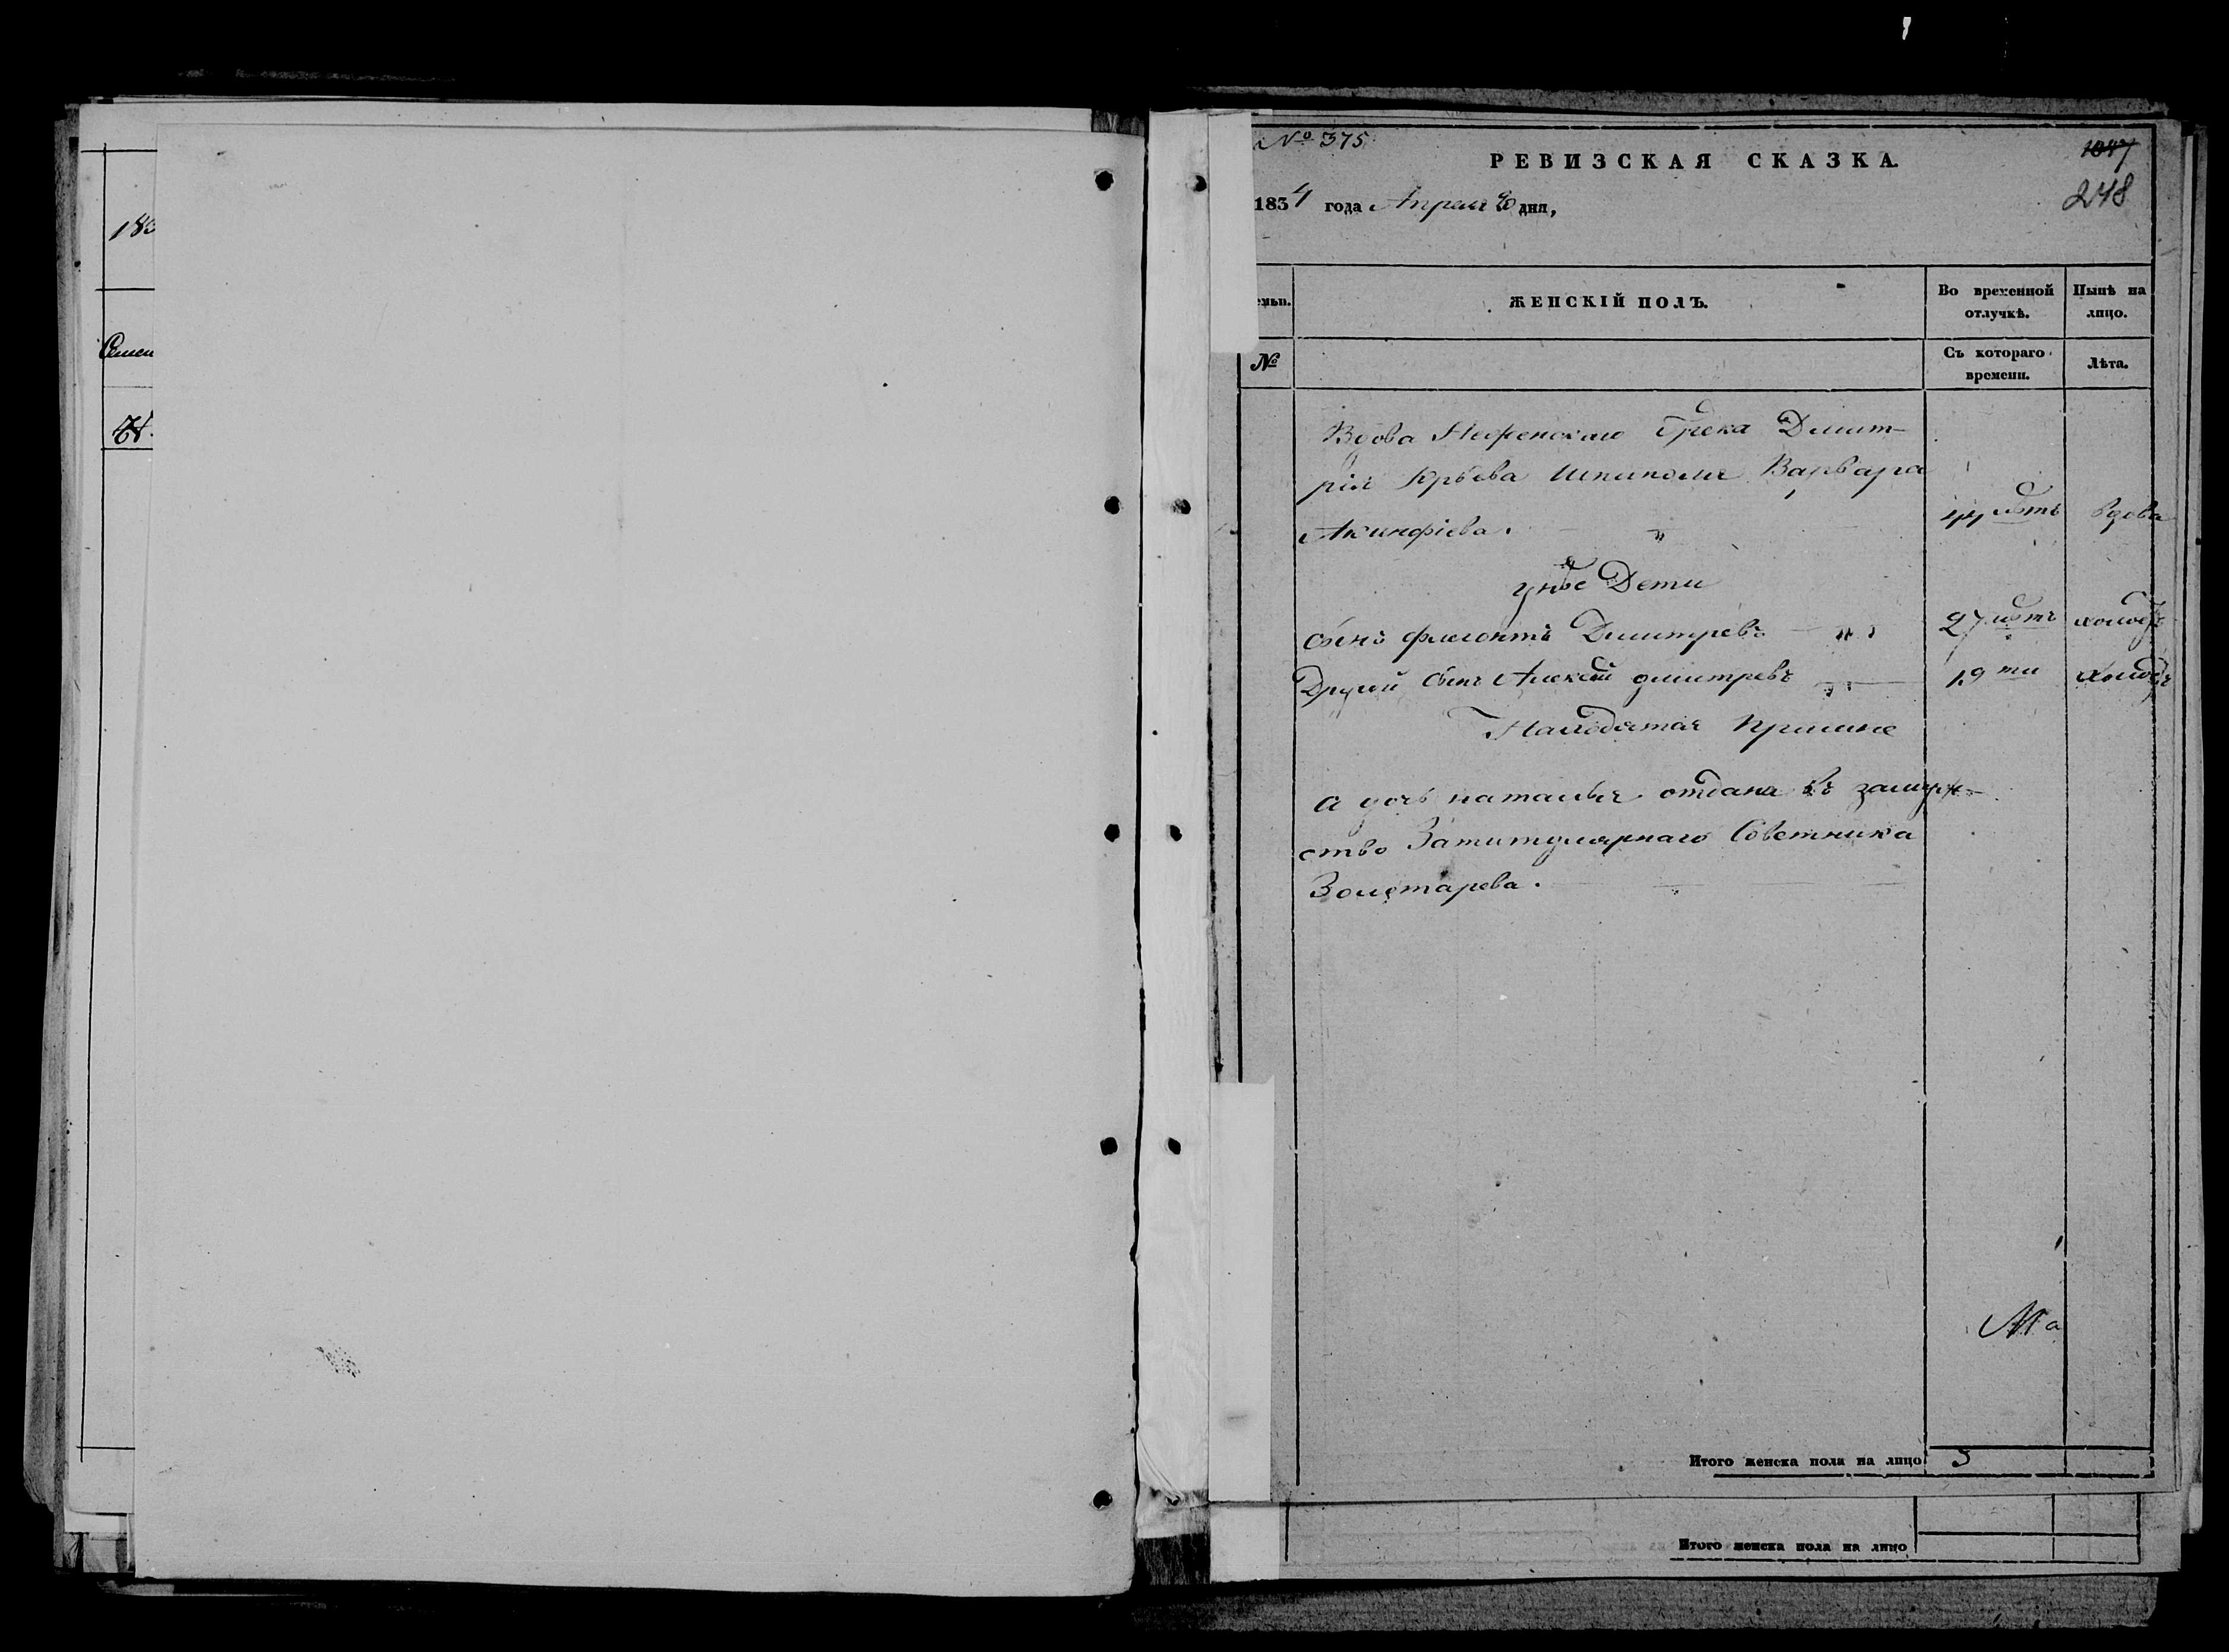 183
Семей
№ 375
РЕВИЗСКАЯ СКАЗКА.
1047
248
1834 года Апреля дня,
емьи.
ЖЕНСКІЙ ПОЛЪ.
Во временной отлучкѣ.
Нынѣ на лицо.
№
Съ котораго времени.
Лѣта.
Вдова Нефенскаго Грека Дмит-
рія Юрьева Варвара
Акинфіева. 44 летъ вдова
унее Дети
Сынъ Флегонтъ Дмитревъ 27 летъ холост
Другой Сынъ Алексей дмитревъ 19 ти холостъ
Находятся Примне
а дочь наталья отдана въ замуж-
ство Затитулярнаго Советника
Золотарева.
Итого женска пола на лицо 3
Итого женска пола на лицо